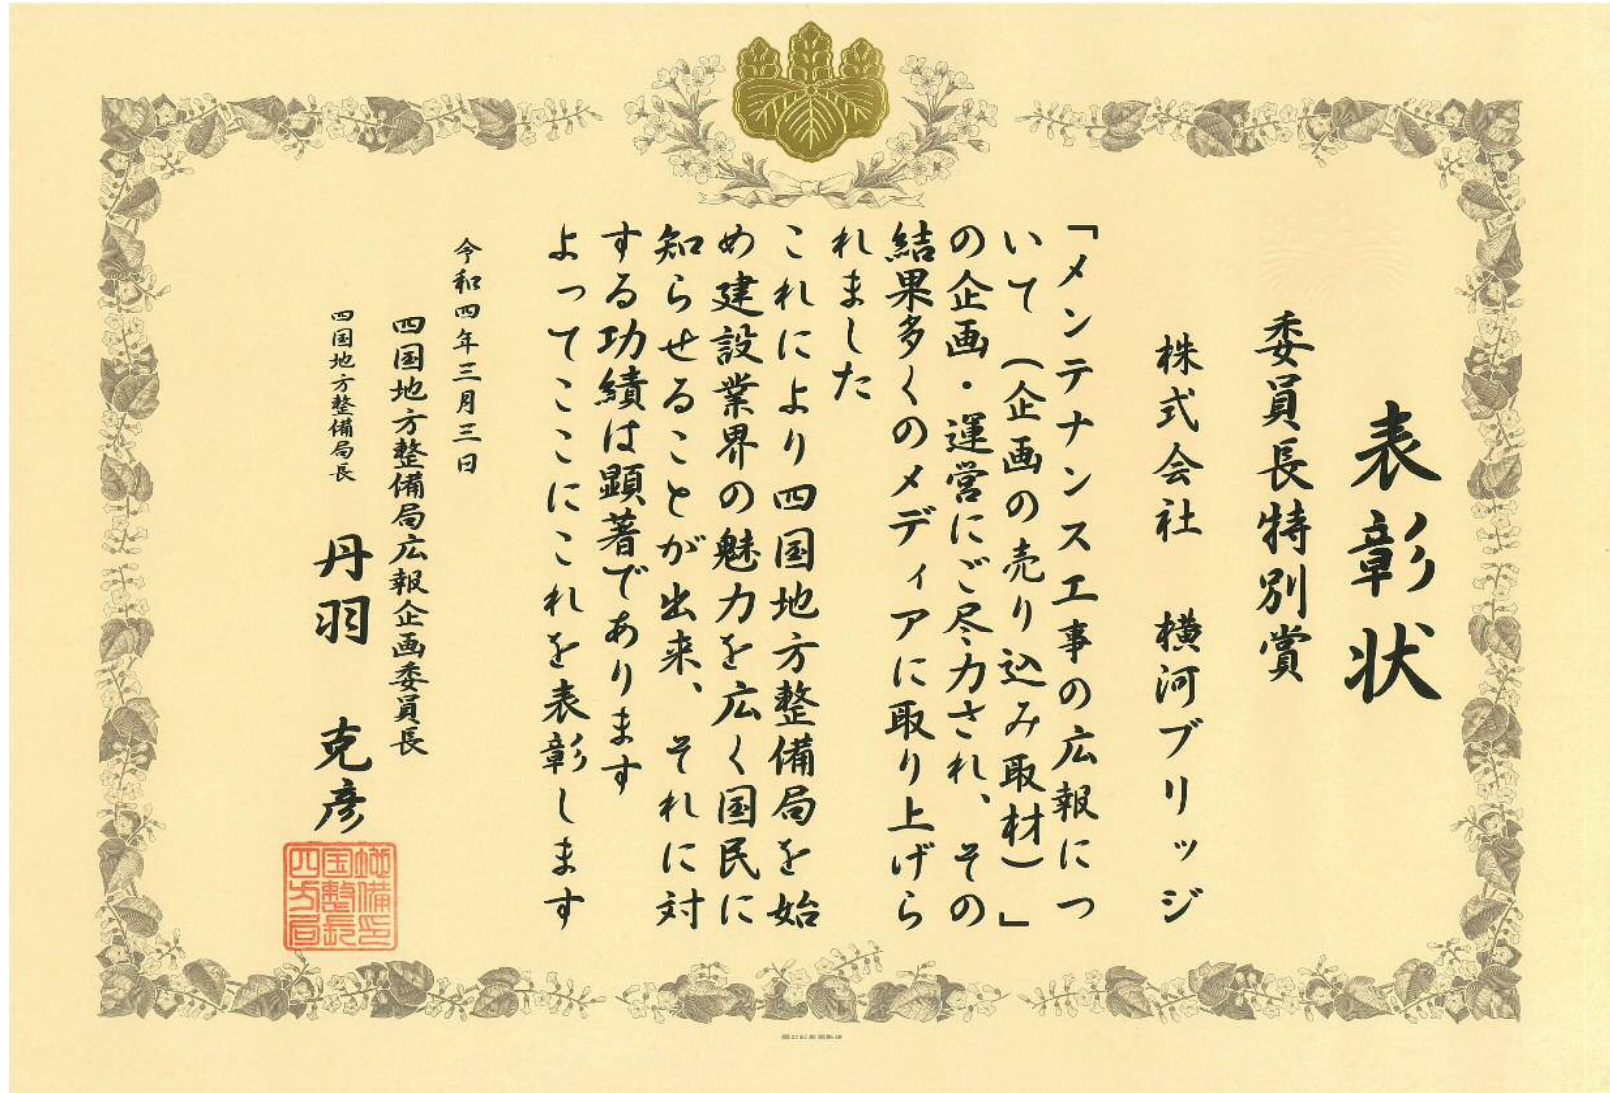 表彰状
委員長特別賞
株式会社 横河ブリッジ
「メンテナンス工事の広報につ
いて(企画の売り込み取材)」
の企画・運営にご尽力され、その
結果多くのメディアに取り上げら
れました
これにより四国地方整備局を始
め建設業界の魅力を広く国民に
知らせることが出来、それに対
する功績は顕著であります
よってここにこれを表彰します
令和四年三月三日
四国地方整備局広報企画委員長
四国地方整備局長 丹羽 克彦